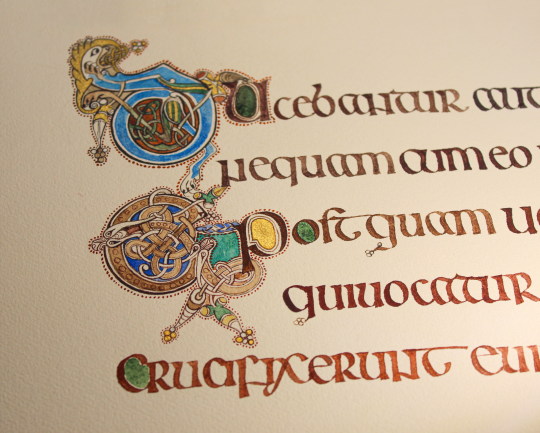 Ducebantur aut
nequam cum eo
Et post quam ue
quiuocatur
Crucifixerunt eum